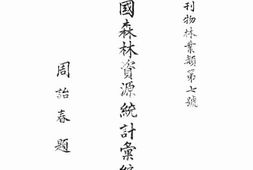 刊物林業類第七號
國森林資源統計彙編
周詒春題